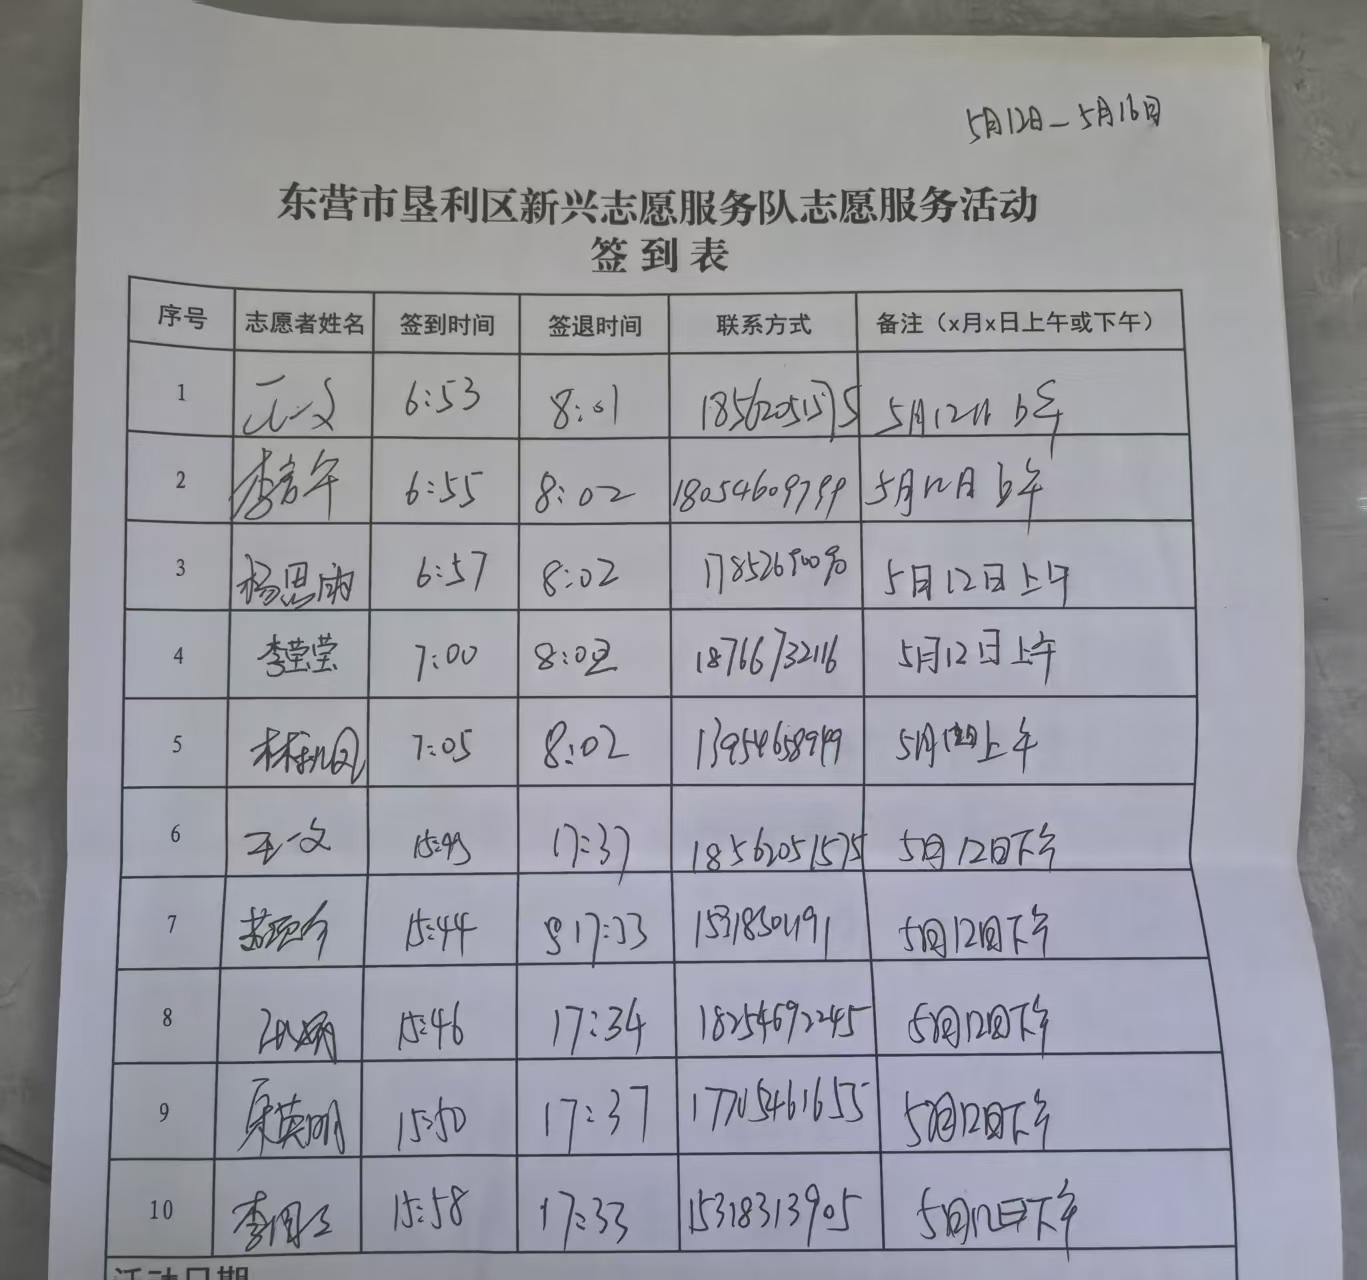 5月12日—5月16日
东营市垦利区新兴志愿服务队志愿服务活动
签到表
序号 志愿者姓名 签到时间 签退时间 联系方式 备注（x月x日上午或下午）
1 王一文 6:53 8:01 18562051575 5月12日上午
2 6:55 8:02 18054609799 5月12日上午
3 杨思雨 6:57 8:02 5月12日上午
4 李莹莹 7:00 8:02 18766732116 5月12日上午
5 7:05 8:02 13954658949 5月12日上午
6 王一文 15:43 17:37 18562051575 5月12日下午
7 15:44 17:33 5月12日下午
8 15:46 17:34 18254692245 5月12日下午
9 15:50 17:37 17705461655 5月12日下午
10 15:58 17:33 15318313905 5月12日下午
活动日期